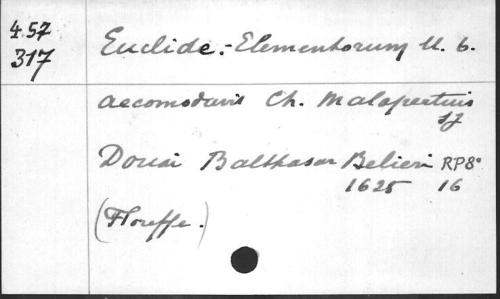 457
317
Euclide.- Elementorum ll. 6.
accomodavit Ch. Malapertuis
SJ
Douai Balthasar Belieri RP8°
1625 16
(Floreffe.)